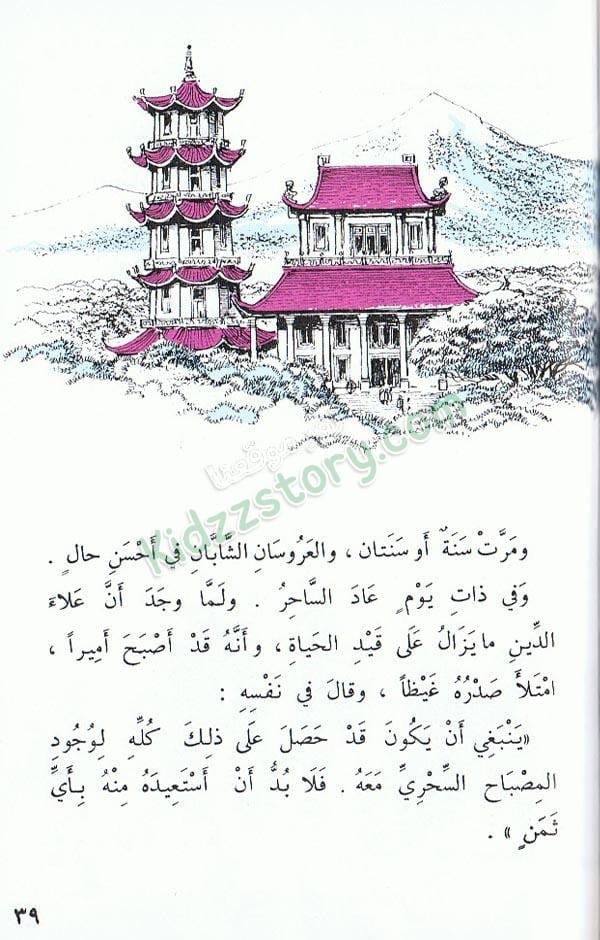 من موقعنا
Kidzzstory.com
ومَرَّتْ سَنَةٌ أو سَنَتان ، والعَرُوسَانِ الشَّابَّانِ في أَحْسَنِ حالٍ .
وَفي ذاتِ يَوْمٍ عَادَ السَّاحِرُ . ولَمَّا وجَدَ أنَّ عَلاءَ
الدِّينِ ما يَزَالُ عَلَى قَيْدِ الحَياةِ ، وأنَّهُ قَدْ أصْبَحَ أمِيراً ،
امْتَلأَ صَدْرُهُ غَيْظاً ، وقالَ في نَفْسِهِ :
«يَنْبَغِي أنْ يَكُونَ قَدْ حَصَلَ عَلَى ذلِكَ كُلِّهِ لِوُجُودِ
المِصْبَاحِ السِّحْرِيِّ مَعَهُ . فَلَا بُدَّ أنْ أَسْتَعِيدَهُ مِنْهُ بِأَيِّ
ثَمَنٍ » .
٣٩